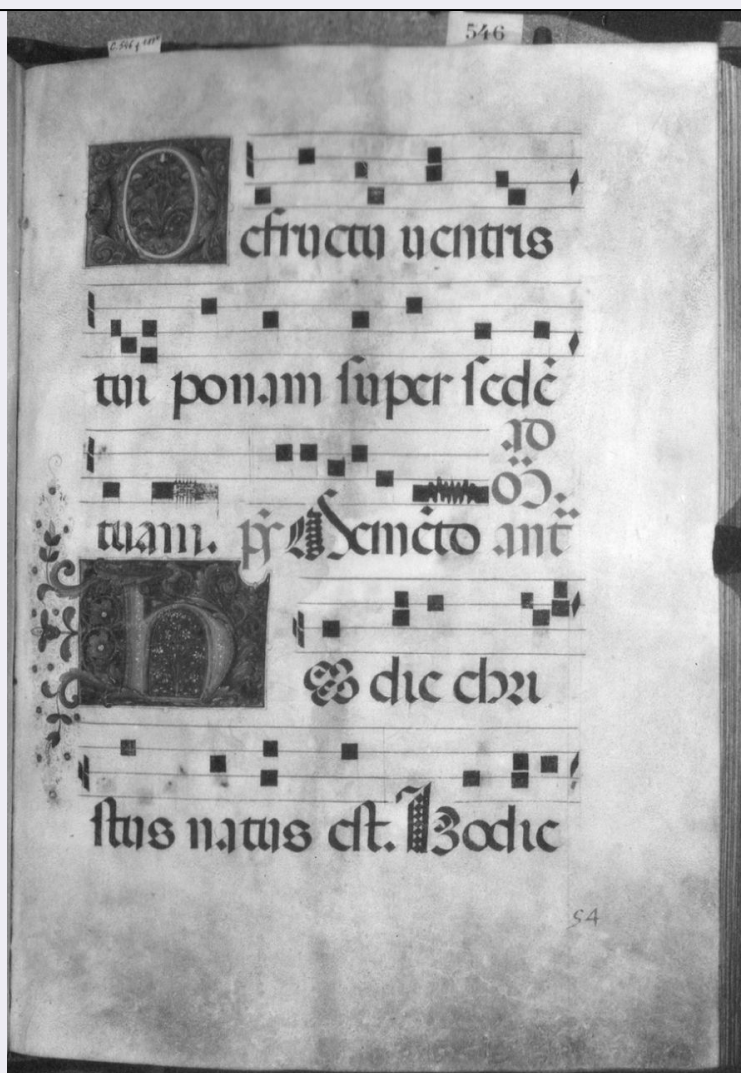 546
De fructu uentris
tui ponam super sedē
tuam. ps̄ Memēto ant̄
ad
Hodie chri
stus natus est. Hodie
54